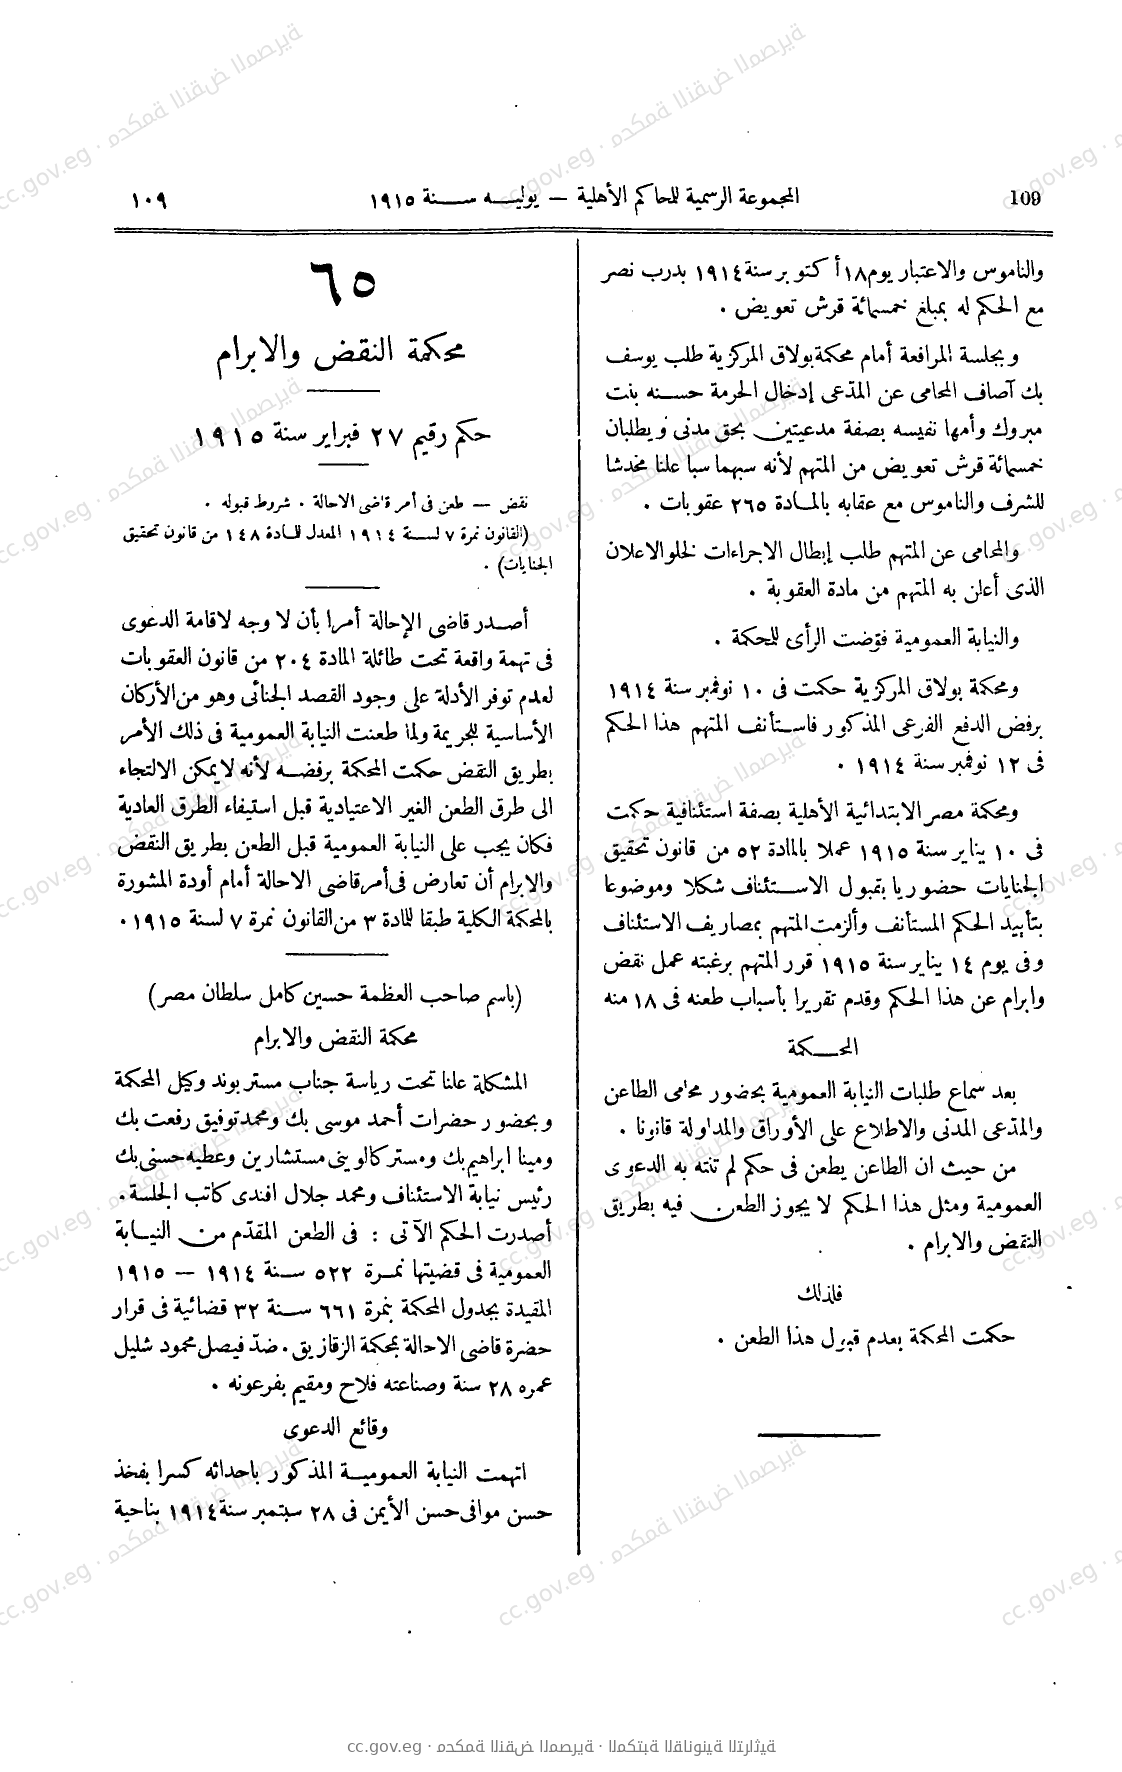 109
المجموعة الرسمية للمحاكم الأهلية — يوليــه ســنة ١٩١٥
١٠٩
والناموس والاعتبار يوم ١٨ أكتوبر سنة ١٩١٤ بدرب نصر
مع الحكم له بمبلغ خمسمائة قرش تعويض .
وبجلسة المرافعة أمام محكمة بولاق المركزية طلب يوسف
بك آصاف المحامى عن المدّعى إدخال الحرمة حســنه بنت
مبروك وأمها نفيسه بصفة مدعيتين بحق مدنى ويطلبان
خمسمائة قرش تعويض من المتهم لأنه سبهما سبا علنا مخدشا
للشرف والناموس مع عقابه بالمــادة ٢٦٥ عقوبات .
والمحامى عن المتهم طلب إبطال الاجراءات لخلو الاعلان
الذى أعلن به المتهم من مادة العقوبة .
والنيابة العمومية فوّضت الرأى للمحكمة .
ومحكمة بولاق المركزية حكمت فى ١٠ نوفمبر سنة ١٩١٤
برفض الدفع الفرعى المذكور فاســتأنف المتهم هذا الحكم
فى ١٢ نوفمبر سنة ١٩١٤ .
ومحكمة مصر الابتدائية الأهلية بصفة استئنافية حكمت
فى ١٠ يناير سنة ١٩١٥ عملا بالمادة ٥٢ من قانون تحقيق
الجنايات حضوريا بقبول الاســتئناف شكلا وموضوعا
بتأييد الحكم المستأنف وألزمت المتهم بمصاريف الاستئناف
وفى يوم ١٤ يناير سنة ١٩١٥ قرر المتهم برغبته عمل نقض
وابرام عن هذا الحكم وقدم تقريرا بأسباب طعنه فى ١٨ منه
المحــكمة
بعد سماع طلبات النيابة العمومية بحضور محامى الطاعن
والمدّعى المدنى والاطلاع على الأوراق والمداولة قانونا .
من حيث ان الطاعن يطعن فى حكم لم تنته به الدعوى
العمومية ومثل هذا الحكم لا يجوز الطعن فيه بطريق
النقض والابرام .
فلذلك
حكمت المحكمة بعدم قبول هذا الطعن .
٦٥
محكمة النقض والابرام
حكم رقيم ٢٧ فبراير سنة ١٩١٥
نقض — طعن فى أمر قاضى الاحالة . شروط قبوله .
(القانون نمرة ٧ لســنة ١٩١٤ المعدل للمــادة ١٤٨ من قانون تحقيق
الجنايات) .
أصــدر قاضى الإحالة أمرا بأن لا وجه لاقامة الدعوى
فى تهمة واقعة تحت طائلة المادة ٢٠٤ من قانون العقوبات
لعدم توفر الأدلة على وجود القصد الجنائى وهو من الأركان
الأساسية للجريمة ولما طعنت النيابة العمومية فى ذلك الأمر
بطريق النقض حكمت المحكمة برفضــه لأنه لا يمكن الالتجاء
الى طرق الطعن الغير الاعتيادية قبل استيفاء الطرق العادية
فكان يجب على النيابة العمومية قبل الطعن بطريق النقض
والابرام أن تعارض فى أمر قاضى الاحالة أمام أودة المشورة
بالمحكمة الكلية طبقا للمادة ٣ من القانون نمرة ٧ لسنة ١٩١٥ .
(باسم صاحب العظمة حسين كامل سلطان مصر)
محكمة النقض والابرام
المشكلة علنا تحت رياسة جناب مستر بوند وكيل المحكمة
وبحضور حضرات أحمد موسى بك ومحمد توفيق رفعت بك
ومينا ابراهيم بك ومستر كالوينى مستشارين وعطيه حسنى بك
رئيس نيابة الاستئناف ومحمد جلال افندى كاتب الجلسة .
أصدرت الحكم الآتى : فى الطعن المقدّم من النيــابة
العمومية فى قضيتها نمــرة ٥٢٢ ســنة ١٩١٤ — ١٩١٥
المقيدة بجدول المحكمة بنمرة ٦٦١ ســنة ٣٢ قضائية فى قرار
حضرة قاضى الاحالة بمحكمة الزقازيق . ضدّ فيصل محمود شليل
عمره ٢٨ سنة وصناعته فلاح ومقيم بفرعونه .
وقائع الدعوى
اتهمت النيابة العموميــة المذكور باحداثه كسرا بفخذ
حسن موافى حسن الأيمن فى ٢٨ سبتمبر سنة ١٩١٤ بناحية
cc.gov.eg · محكمة النقض المصرية · المكتبة القانونية التراثية